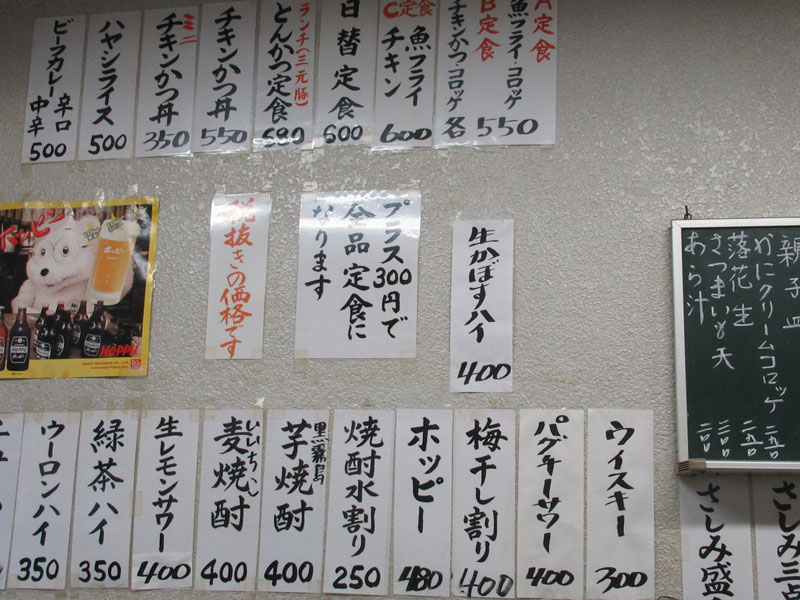 A定食
魚フライ・コロッケ
B定食
チキンかつ・コロッケ
各550
C定食
魚フライ
チキン
600
日替定食
600
ランチ(三元豚)
とんかつ定食
680
チキンかつ丼
550
ミニ
チキンかつ丼
350
ハヤシライス
500
ビーフカレー 辛口
中辛
500
生かぼすハイ
400
プラス300円で
全品 定食に
なります
税抜きの価格です
ホッピー
HOPPY
親子皿
かにクリームコロッケ
落花生
さつまいも天
あら汁
さしみ三点
さしみ盛
ウイスキー
300
パグキーサワー
400
梅干し割り
400
ホッピー
480
焼酎水割り
250
黒霧島
芋焼酎
400
いいちこ
麦焼酎
400
生レモンサワー
400
緑茶ハイ
350
ウーロンハイ
350